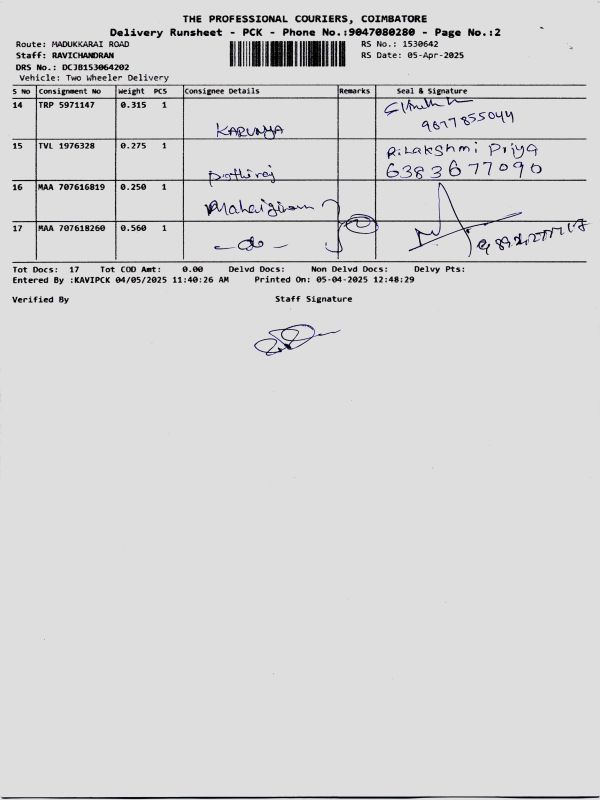 THE PROFESSIONAL COURIERS, COIMBATORE
Delivery Runsheet - PCK - Phone No.:9047080280 - Page No.:2
Route: MADUKKARAI ROAD RS No.: 1530642
Staff: RAVICHANDRAN RS Date: 05-Apr-2025
DRS No.: DCJB153064202
Vehicle: Two Wheeler Delivery
S No Consignment No Weight PCS Consignee Details Remarks Seal & Signature
14 TRP 5971147 0.315 1
KARUNYA 9677855044
15 TVL 1976328 0.275 1 R.Lakshmi Priya
pothiraj 6383677090
16 MAA 707616819 0.250 1
17 MAA 707618260 0.560 1
- do -
Tot Docs: 17 Tot COD Amt: 0.00 Delvd Docs: Non Delvd Docs: Delvy Pts:
Entered By :KAVIPCK 04/05/2025 11:40:26 AM Printed On: 05-04-2025 12:48:29
Verified By Staff Signature